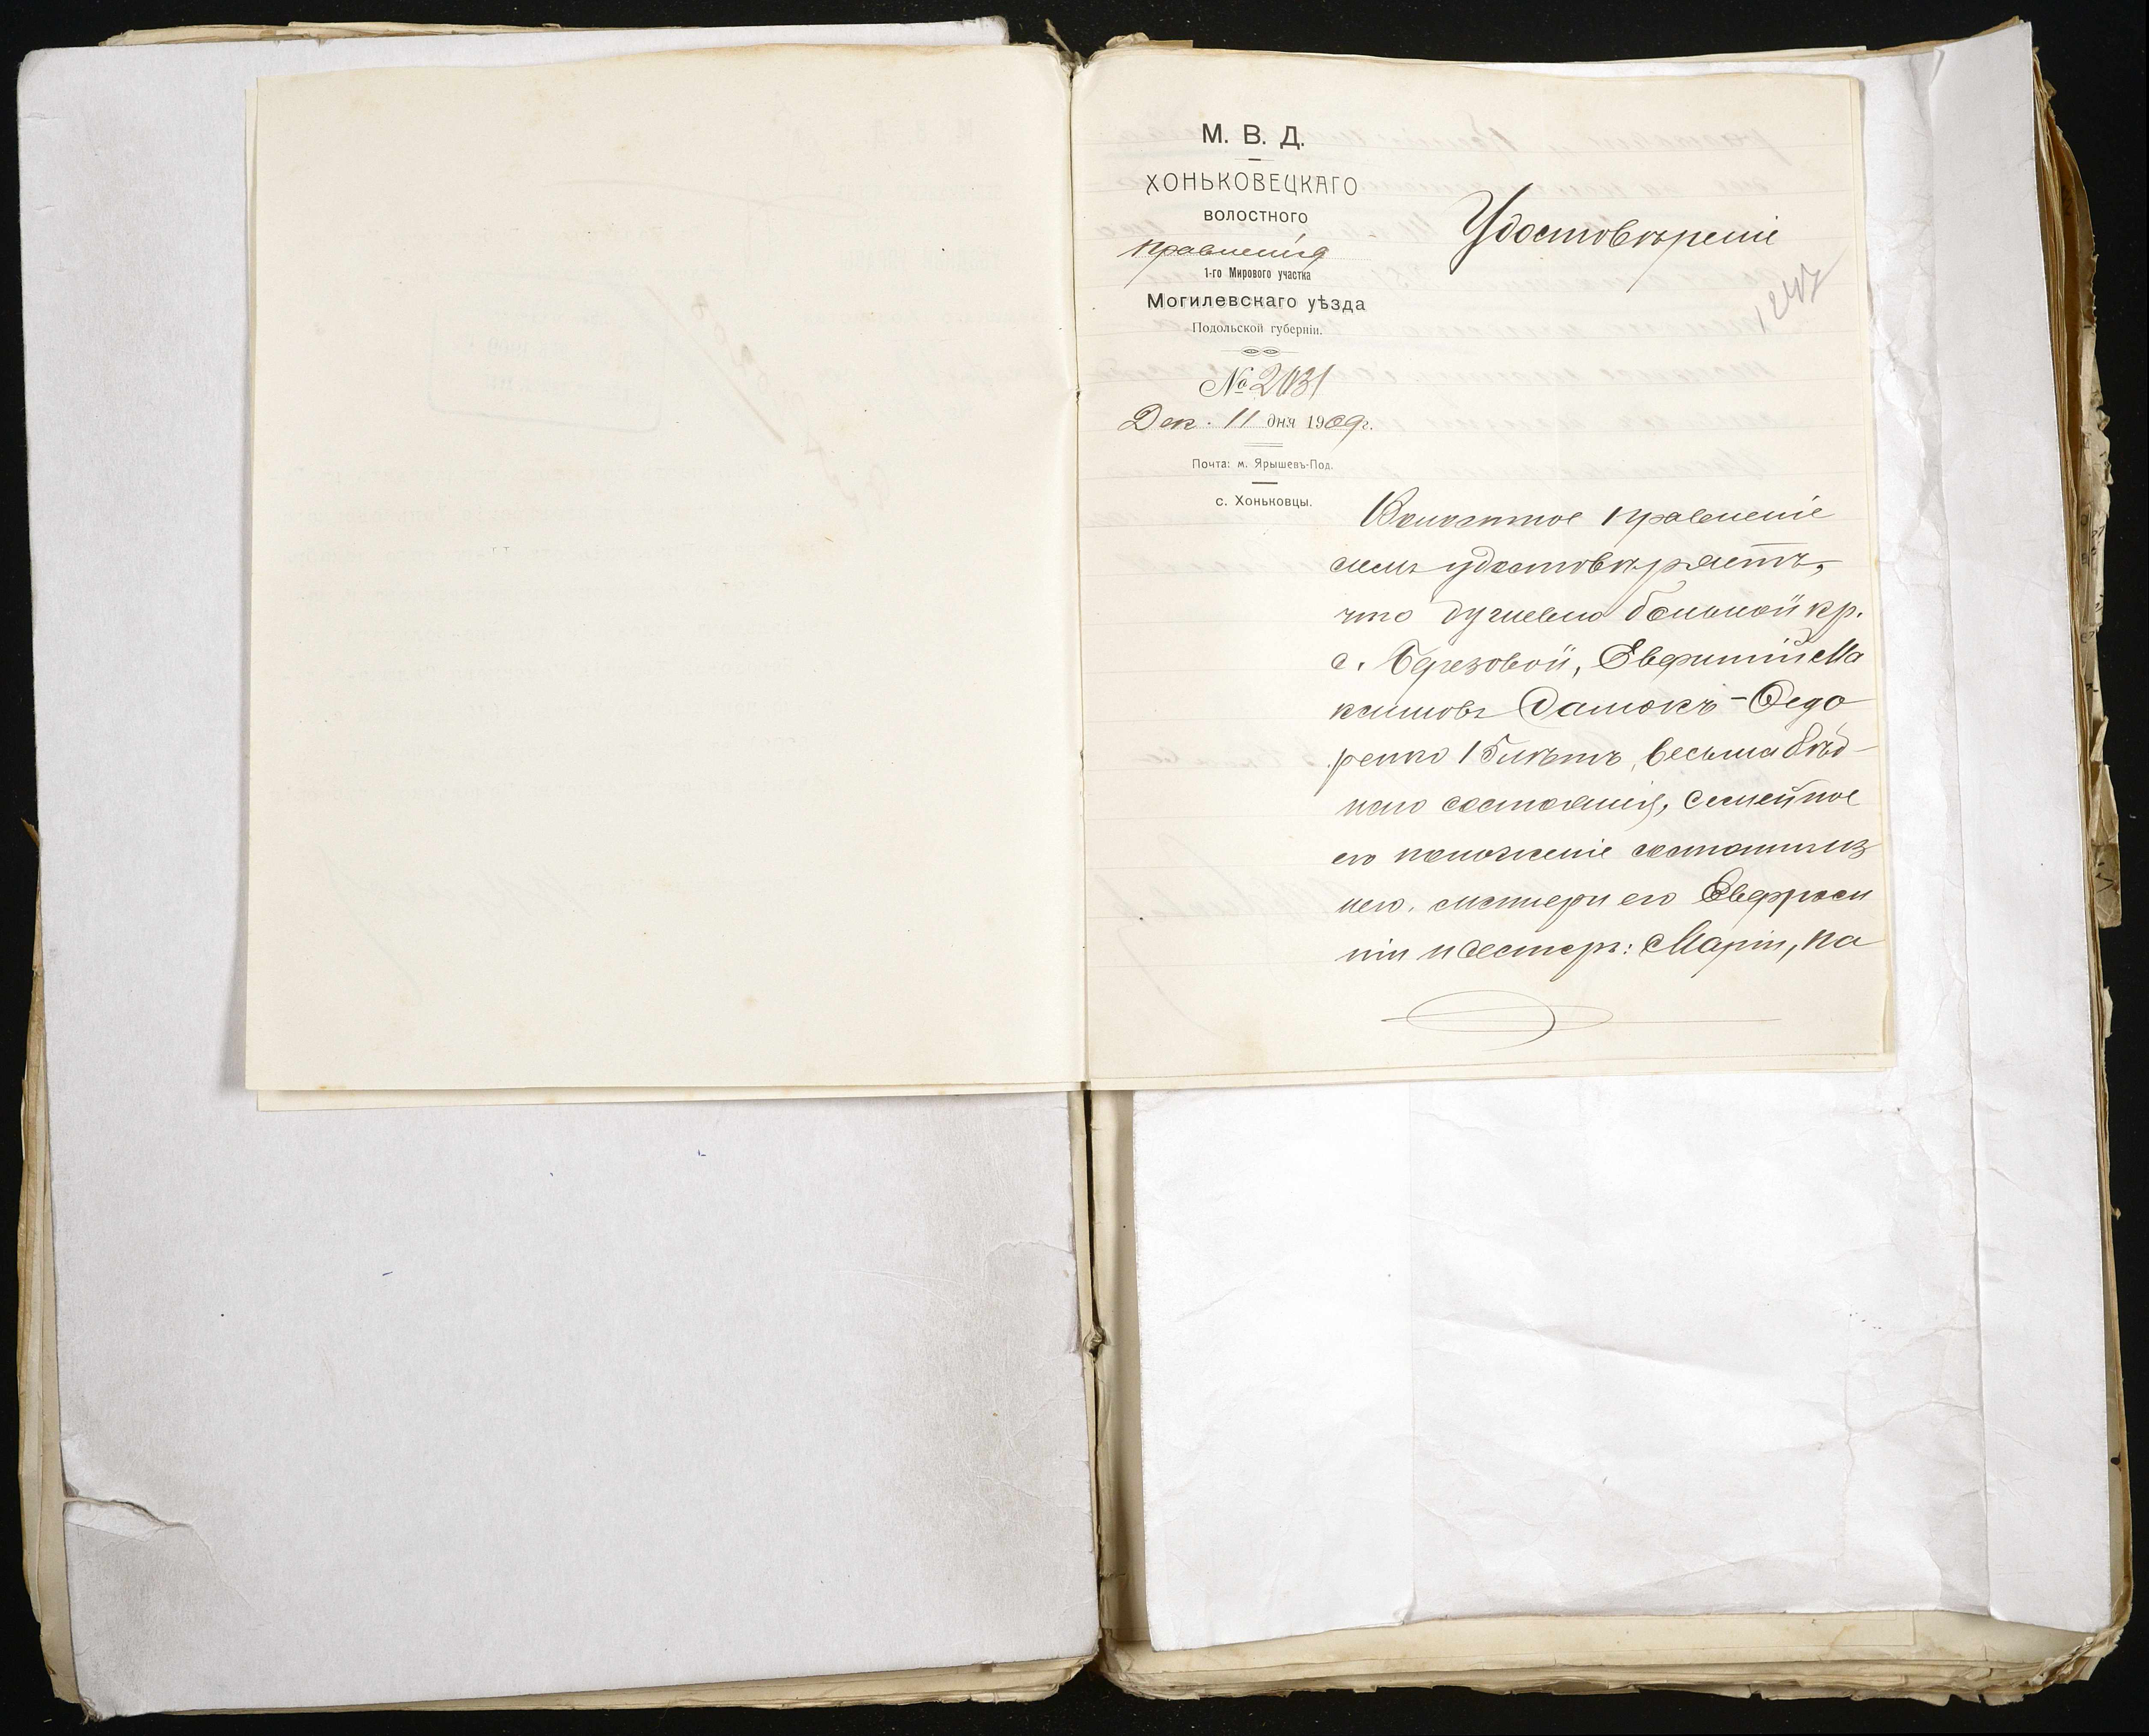 М. В. Д.
ХОНЬКОВЕЦКАГО
ВОЛОСТНОГО
Правленія
1-го Мирового участка
Могилевскаго уѣзда
Подольской губерніи.
№ 2031
Дек. 11 дня 1909 г.
Почта: м. Ярышевъ-Под.
с. Хоньковцы.
Удостовѣреніе
Волостное правленіе
симъ удостовѣряетъ,
что душевно больной кр.
с. Березовой, Евфимій Ма
ксимовъ -Федо
ренко 15 лѣтъ, весьма бѣд-
наго состоянія, семейное
его положеніе состоитъ из
него, матери его Евфроси
ніи и сестеръ: Маріи, ка